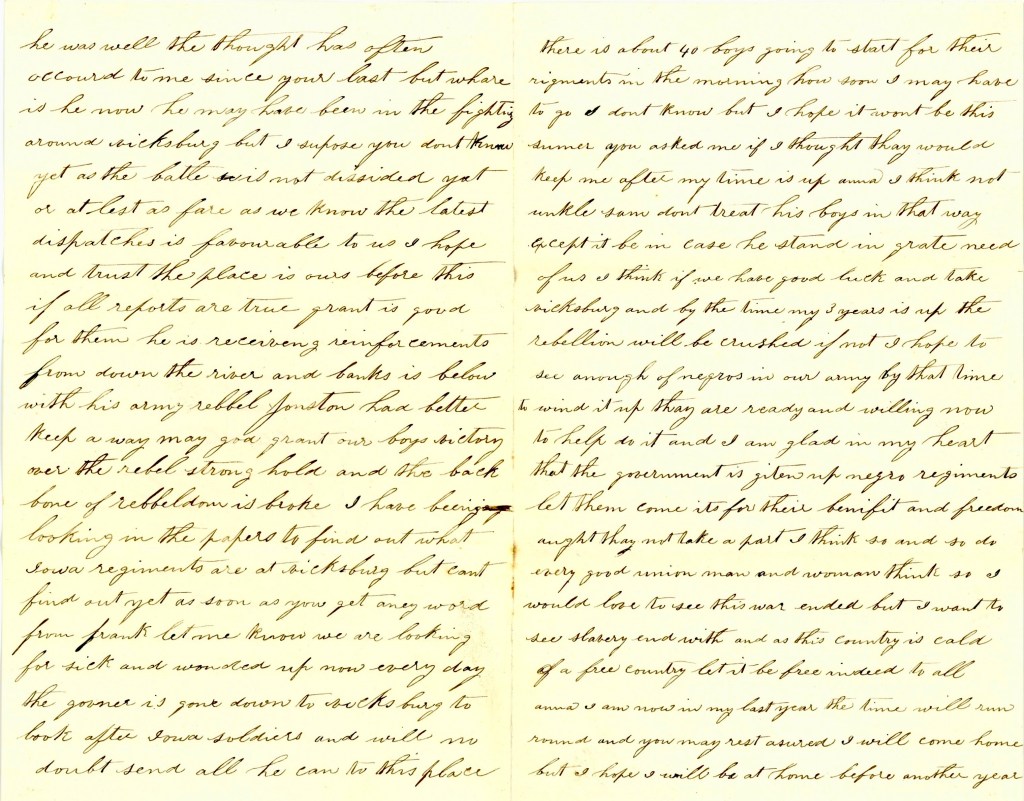 he was well the thought has often
occourd to me since your last but whare
is he now he may have been in the fighting
around vicksburg but I supose you dont know
yet as the batle is not dissided yet
or at lest as fare as we know the latest
dispatches is favourable to us I hope
and trust the place is ours before this
if all reports are true grant is good
for them he is receiveng reinforcements
from down the river and banks is below
with his army rebbel Jonston had better
keep a way may god grant our boys victory
over the rebel strong hold and the back
bone of rebbeldom is broke I have being
looking in the papers to find out what
Iowa regiments are at vicksburg but cant
find out yet as soon as you get aney word
from frank let me know we are looking
for sick and wonded up now every day
the govner is gone down to vicksburg to
look after Iowa soldiers and will no
doubt send all he can to this place
there is about 40 boys going to start for their
rigments in the morning how soon I may have
to go I dont know but I hope it wont be this
sumer you asked me if I thought thay would
keep me after my time is up anna I think not
unkle sam dont treat his boys in that way
except it be in case he stand in grate need
of us I think if we have good luck and take
vicksburg and by the time my 3 years is up the
rebellion will be crushed if not I hope to
see anough of negros in our army by that time
to wind it up thay are ready and willing now
to help do it and I am glad in my heart
that the government is giten up negro regiments
let them come its for their benifit and freedom
aught thay not take a part I think so and so do
every good union man and woman think so I
would love to see this war ended but I want to
see slavery end with and as this country is cald
of a free country let it be free indeed to all
anna I am now in my last year the time will run
round and you may rest asured I will come home
but I hope I will be at home before another year